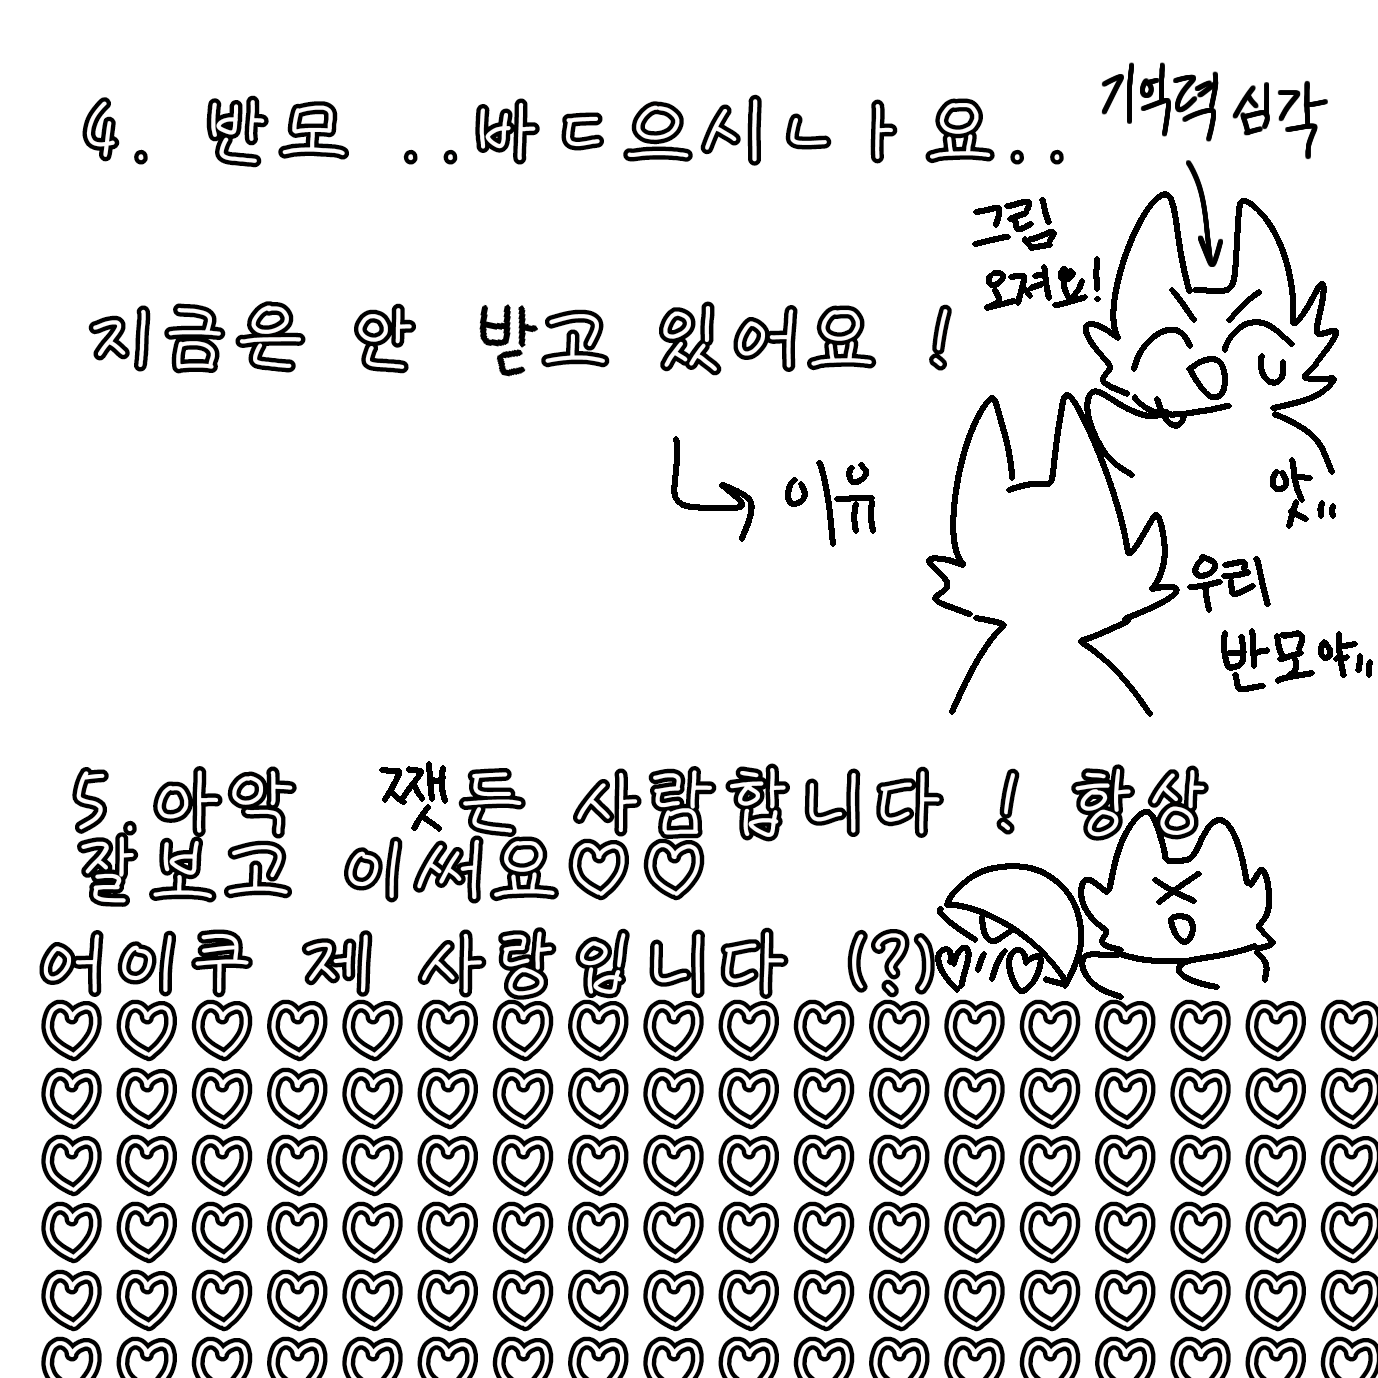 4. 반모 ..바ㄷ으시ㄴㅏ요..
기억력 심각
그림
오져요!
지금은 안 받고 있어요 !
이유
앗"
우리
반모야"
5.아악 쨋든 사람합니다 ! 항상
잘보고 이써요♡♡
어이쿠 제 사랑입니다 (?)
♡♡♡♡♡♡♡♡♡♡♡♡♡♡♡♡♡♡
♡♡♡♡♡♡♡♡♡♡♡♡♡♡♡♡♡♡
♡♡♡♡♡♡♡♡♡♡♡♡♡♡♡♡♡♡
♡♡♡♡♡♡♡♡♡♡♡♡♡♡♡♡♡♡
♡♡♡♡♡♡♡♡♡♡♡♡♡♡♡♡♡♡
♡♡♡♡♡♡♡♡♡♡♡♡♡♡♡♡♡♡